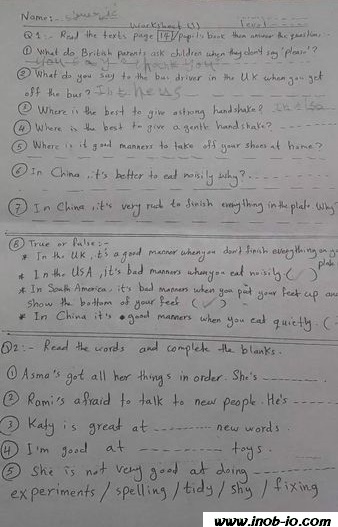 Name:-
Worksheet (1)
Q1:- Read the texts page 14 pupil's book then answer the questions:-
① What do British parents ask children when they don't say 'please'?
② What do you say to the bus driver in the UK when you get
off the bus?
③ Where is the best to give a strong handshake?
④ Where is the best to give a gentle handshake?
⑤ Where is it good manners to take off your shoes at home?
⑥ In China, it's better to eat noisily why?
⑦ In China, it's very rude to finish everything in the plate Why?
⑧ True or false:-
* In the UK, it's a good manner when you don't finish everything on yo
plate
* In the USA, it's bad manners when you eat noisily (✓)
* In South America, it's bad manners when you put your feet up and
show the bottom of your feet (✓)
* In China it's good manners when you eat quietly. (
Q2:- Read the words and complete the blanks.
① Asma's got all her things in order. She's ----------
② Rami's afraid to talk to new people. He's ---------
③ Katy is great at --------- new words.
④ I'm good at ---------- toys.
⑤ She is not very good at doing ---------
experiments / spelling / tidy / shy / fixing
www.inob-io.com